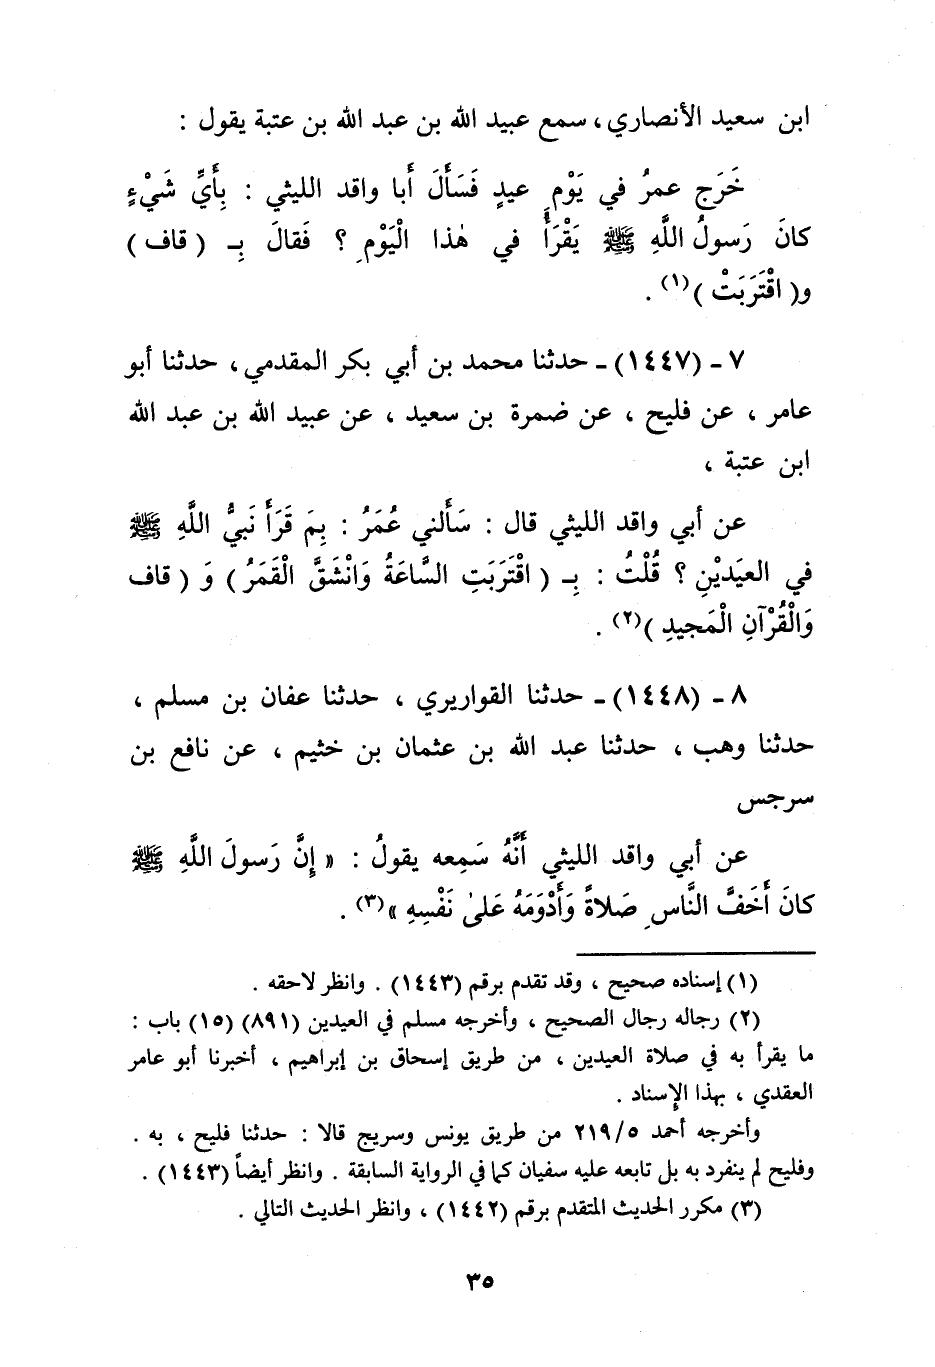 ابن سعيد الأنصاري ، سمع عبيد الله بن عبد الله بن عتبة يقول :
خَرَج عمرُ في يَوْمِ عيدٍ فَسَأَلَ أَبا واقد الليثي : بِأَيِّ شَيْءٍ
كانَ رَسولُ اللَّهِ ﷺ يَقْرَأُ في هٰذا الْيَوْمِ ؟ فَقالَ بِـ ( قاف )
و( اقْتَرَبَتْ )(١) .
٧ ـ (١٤٤٧) ـ حدثنا محمد بن أبي بكر المقدمي ، حدثنا أبو
عامر ، عن فليح ، عن ضمرة بن سعيد ، عن عبيد الله بن عبد الله
ابن عتبة ،
عن أبي واقد الليثي قال : سَأَلني عُمَرُ : بِمَ قَرَأَ نَبيُّ اللَّهِ ﷺ
في العيَديْنِ ؟ قُلْتُ : بِـ ( اقْتَرَبَتِ السَّاعَةُ وَانْشَقَّ الْقَمَرُ ) وَ ( قاف
وَالْقُرْآنِ الْمَجيدِ )(٢) .
٨ ـ (١٤٤٨) ـ حدثنا القواريري ، حدثنا عفان بن مسلم ،
حدثنا وهب ، حدثنا عبد الله بن عثمان بن خثيم ، عن نافع بن
سرجس
عن أبي واقد الليثي أَنَّهُ سَمِعه يقولُ : « إِنَّ رَسولَ اللَّهِ ﷺ
كانَ أَخَفَّ النَّاسِ صَلاةً وَأَدْوَمَهُ عَلىٰ نَفْسِهِ »(٣) .
(١) إسناده صحيح ، وقد تقدم برقم (١٤٤٣) . وانظر لاحقه .
(٢) رجاله رجال الصحيح ، وأخرجه مسلم في العيدين (٨٩١) (١٥) باب :
ما يقرأ به في صلاة العيدين ، من طريق إسحاق بن إبراهيم ، أخبرنا أبو عامر
العقدي ، بهذا الإسناد .
وأخرجه أحمد ٢١٩/٥ من طريق يونس وسريج قالا : حدثنا فليح ، به .
وفليح لم ينفرد به بل تابعه عليه سفيان كما في الرواية السابقة . وانظر أيضاً (١٤٤٣) .
(٣) مكرر الحديث المتقدم برقم (١٤٤٢) ، وانظر الحديث التالي .
٣٥